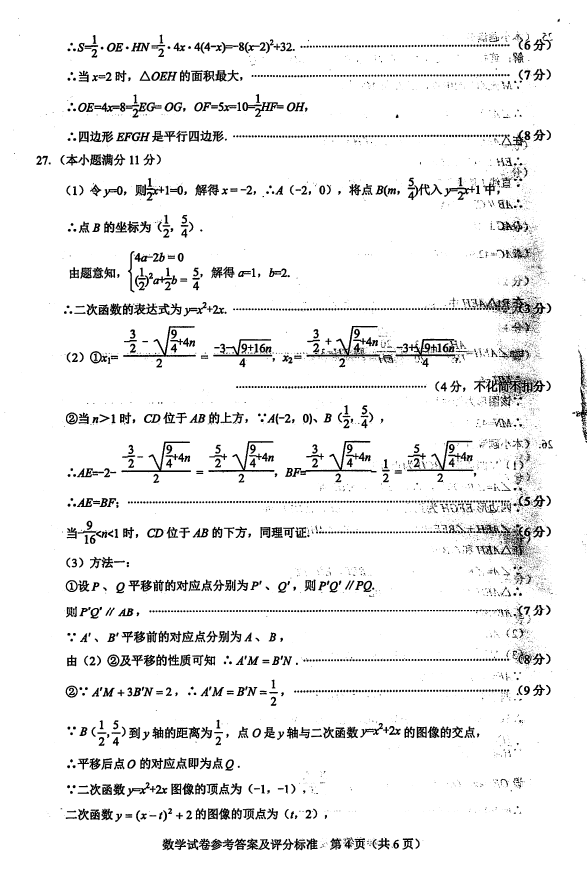 ∴S=1/2·OE·HN=1/2·4x·4(4-x)=-8(x-2)²+32. (6分)
∴当 x=2 时，△OEH 的面积最大， (7分)
∴OE=4x=8=1/2EG=OG，OF=5x=10=1/2HF=OH，
∴四边形 EFGH 是平行四边形. (8分)
27.（本小题满分 11 分）
（1）令 y=0，则1/2x+1=0，解得 x=-2，∴A（-2，0），将点 B(m，5/4)代入 y=1/2x+1 中，
∴点 B 的坐标为（1/2，5/4）.
由题意知，{4a-2b=0 (1/2)²a+1/2b=5/4，解得 a=1，b=2.
∴二次函数的表达式为 y=x²+2x. (3分)
（2）①x₁=(-3/2-√(9/4+4n))/2=(-3-√(9+16n))/4，x₂=(-3/2+√(9/4+4n))/2=(-3+√(9+16n))/4
（4 分，不化简不扣分）
②当 n＞1 时，CD 位于 AB 的上方，∵A(-2，0)、B（1/2，5/4），
∴AE=-2-(-3/2-√(9/4+4n))/2=(-5/2+√(9/4+4n))/2，BF=(-3/2+√(9/4+4n))/2-1/2=(-5/2+√(9/4+4n))/2，
∴AE=BF； (5分)
当-9/16<n<1 时，CD 位于 AB 的下方，同理可证. (6分)
（3）方法一：
①设 P 、 Q 平移前的对应点分别为 P′ 、 Q′ ，则 P′Q′ // PQ.
则 P′Q′ // AB， (7分)
∵ A′ 、 B′ 平移前的对应点分别为 A 、 B ，
由（2）②及平移的性质可知 ∴ A′M = B′N . (8分)
②∵ A′M + 3B′N = 2，∴ A′M = B′N = 1/2， (9分)
∵ B（1/2，5/4）到 y 轴的距离为1/2，点 O 是 y 轴与二次函数 y=x²+2x 的图像的交点，
∴平移后点 O 的对应点即为点 Q .
∵二次函数 y=x²+2x 图像的顶点为（-1，-1），
二次函数 y = (x-t)² + 2 的图像的顶点为（t，2），
数学试卷参考答案及评分标准 第 4 页（共 6 页）